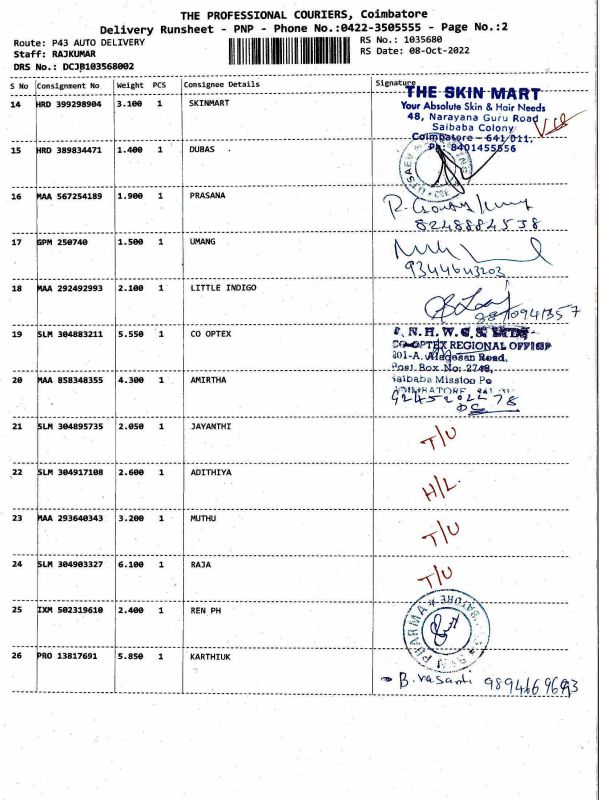 THE PROFESSIONAL COURIERS, Coimbatore
Delivery Runsheet - PNP - Phone No.:0422-3505555 - Page No.:2
Route: P43 AUTO DELIVERY
RS No.: 1035680
Staff: RAJKUMAR
RS Date: 08-Oct-2022
DRS No.: DCJB103568002
S No Consignment No Weight PCS Consignee Details Signature
14 HRD 399298904 3.100 1 SKINMART
THE SKIN MART
Your Absolute Skin & Hair Needs
48, Narayana Guru Road
Saibaba Colony
Coimbatore - 641 011.
Ph: 8401455556
15 HRD 389834471 1.400 1 DUBAS
16 MAA 567254189 1.900 1 PRASANA
8248884538
17 GPM 250740 1.500 1 UMANG
9344643203
18 MAA 292492993 2.100 1 LITTLE INDIGO
9810941357
19 SLM 304883211 5.550 1 CO OPTEX
CO-OPTEX REGIONAL OFFICE
201-A, Alagesan Road,
Post. Box No: 2748,
Saibaba Mission Po
COIMBATORE
20 MAA 858348355 4.300 1 AMIRTHA
21 SLM 304895735 2.050 1 JAYANTHI T/U
22 SLM 304917108 2.600 1 ADITHIYA H/L.
23 MAA 293640343 3.200 1 MUTHU T/U
24 SLM 304903327 6.100 1 RAJA T/U
25 IXM 502319610 2.400 1 REN PH
PHARMA
26 PRO 13817691 5.850 1 KARTHIUK
B. Vasanti